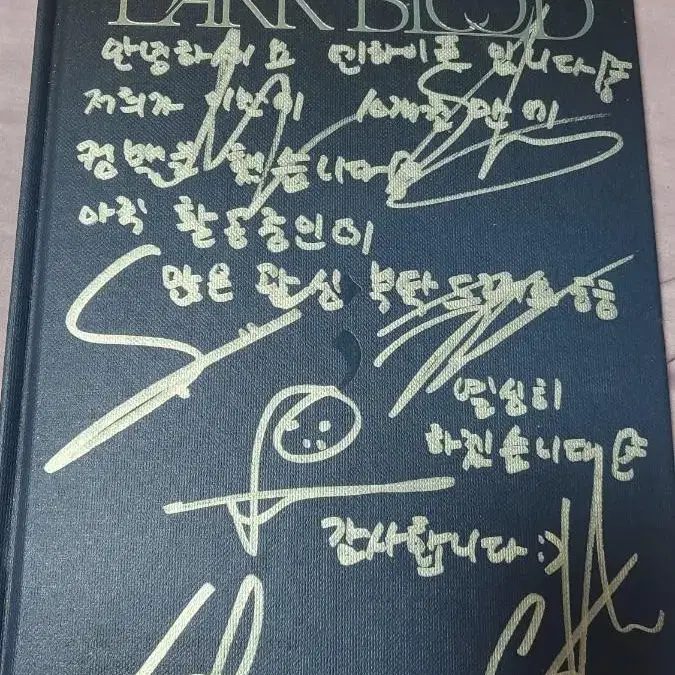 DARK BLOOD
안녕하세요 엔하이픈 입니다
저희가 이번에 10개월 만에
컴백을 했습니다
아직 활동중인데
많은 관심 부탁드려요
열심히
하겠습니다
감사합니다 :)